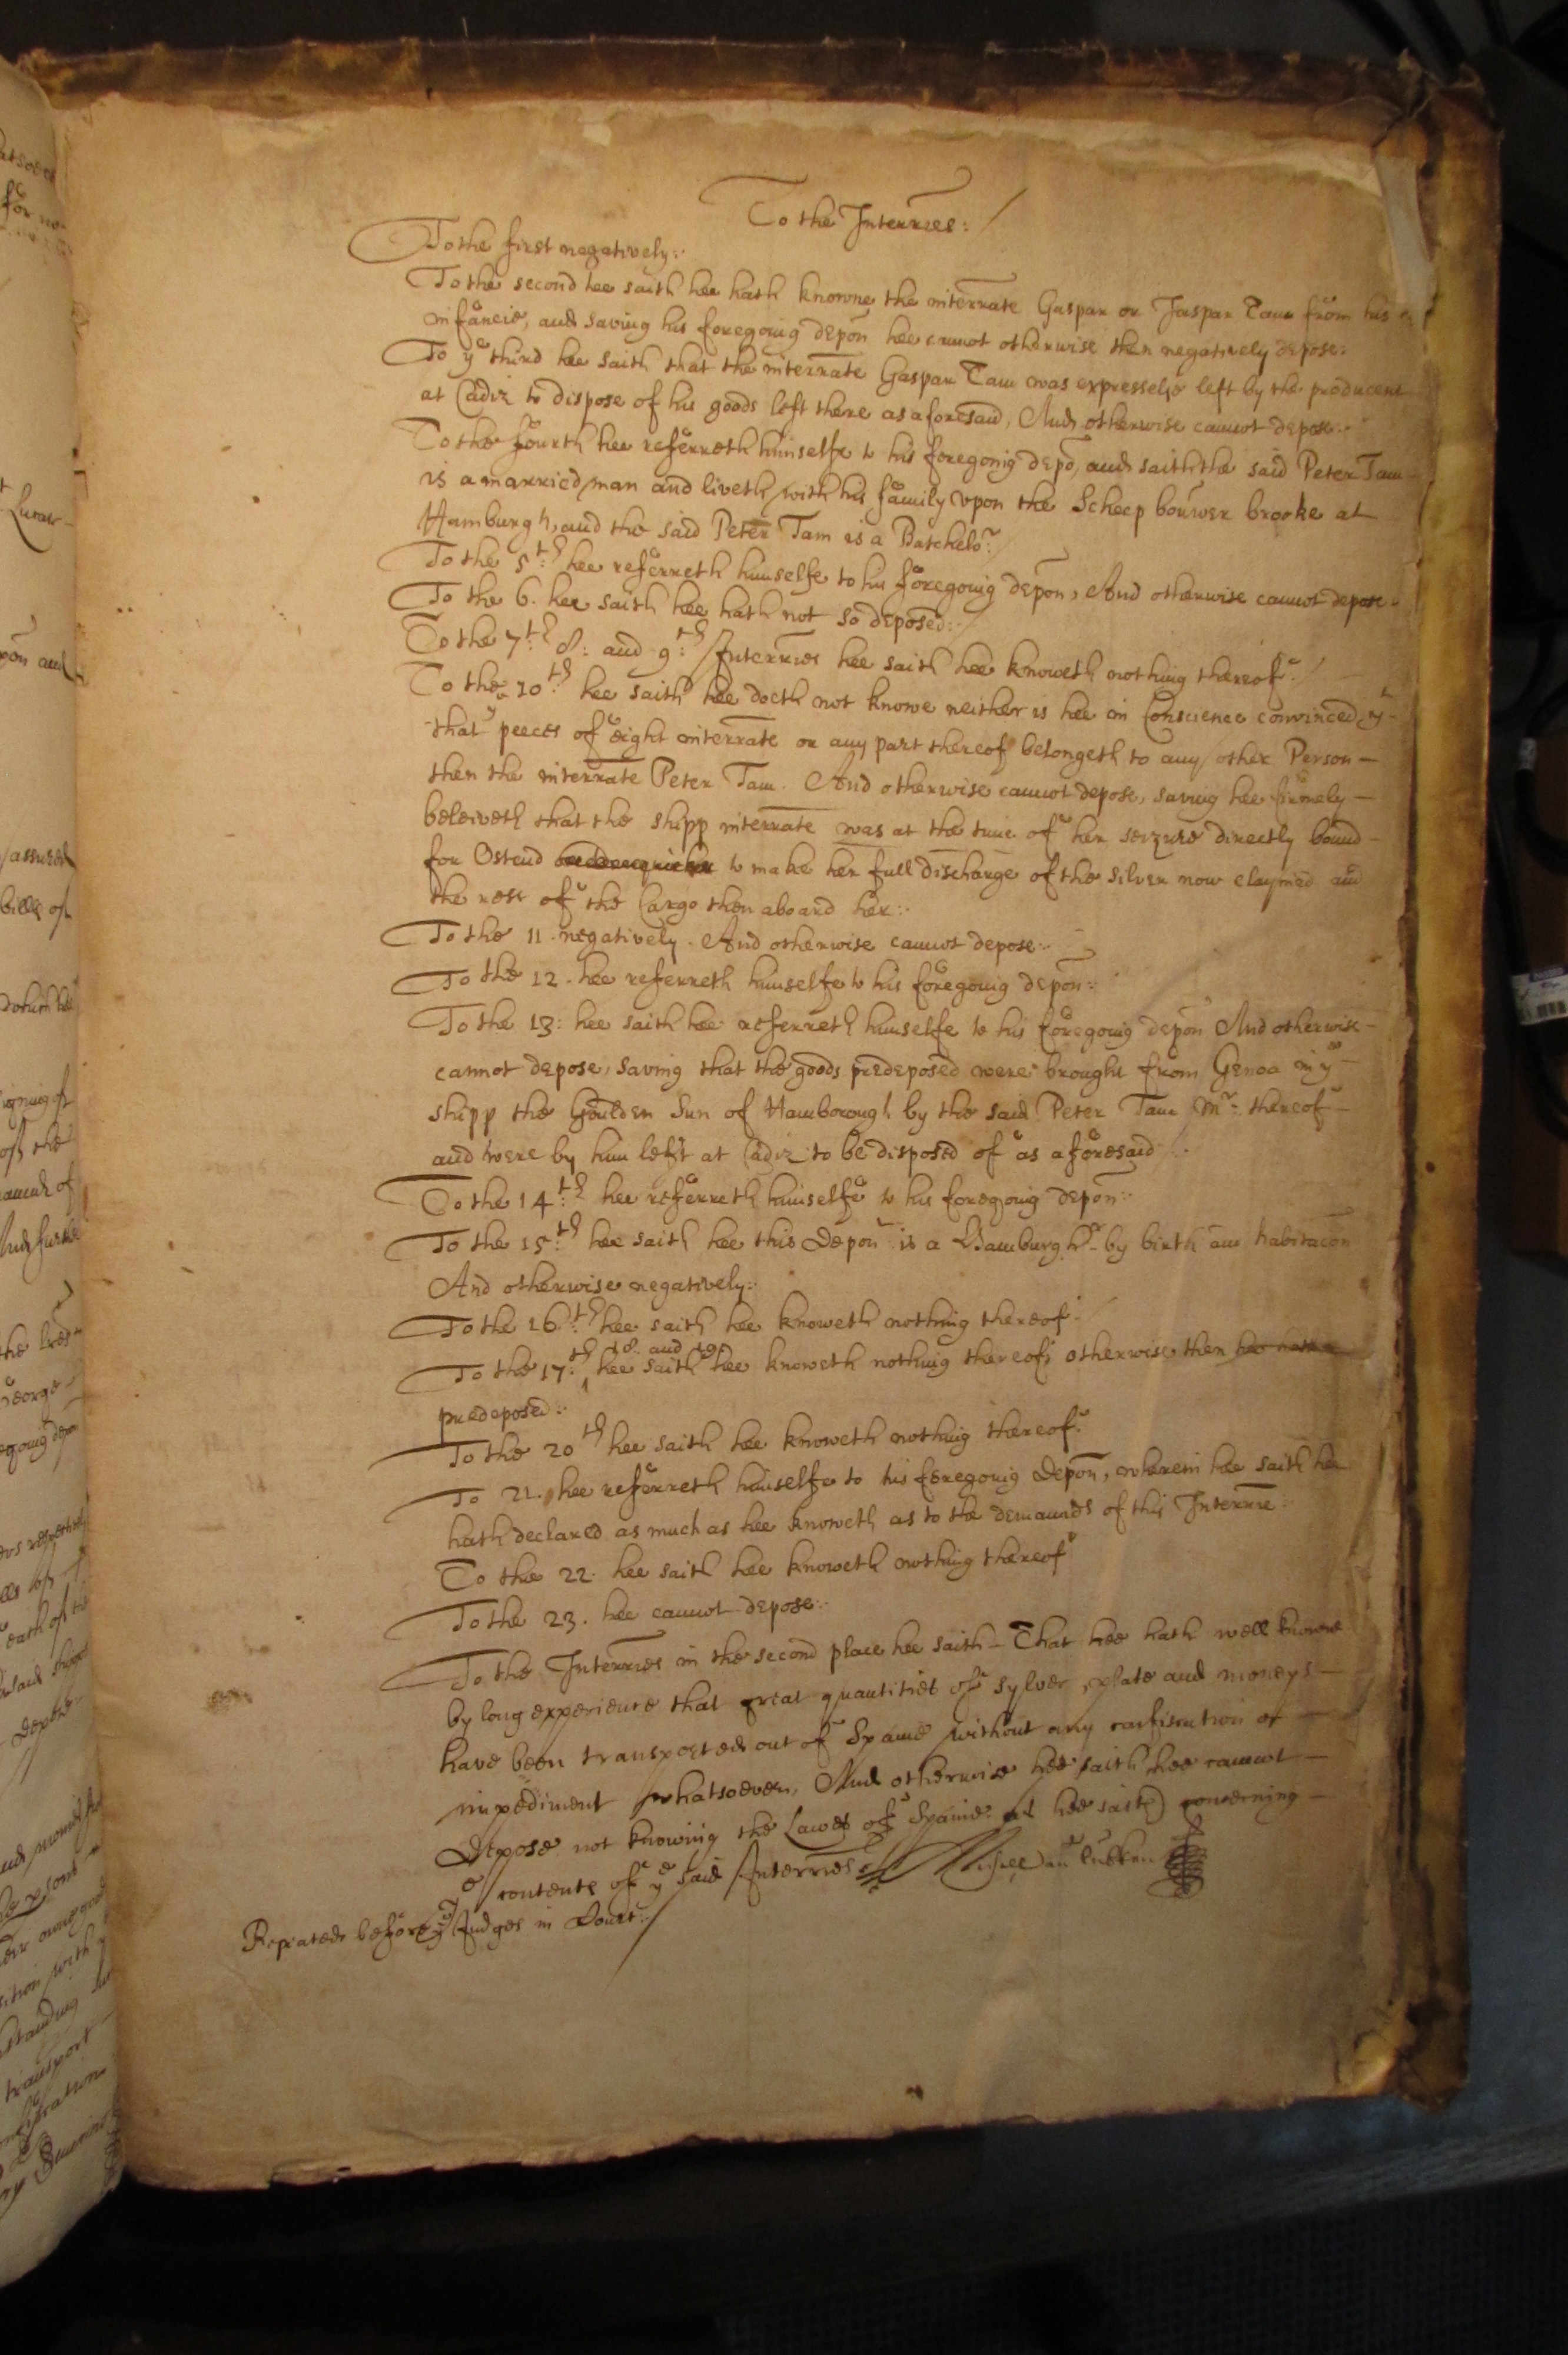 To the Interries:
To the first negatively:
To the second hee saith hee hath knowne the interrate Gaspar or Jaspar Tam from his
infancie, and saving his foregoing depon hee cannot otherwise then negatively depose:
To ye third hee saith that the interrate Gaspar Tam was expresselie left by the producent
at Cadiz to dispose of his goods left there as aforesaid, And otherwise cannot depose:
To the fourth hee referreth himselfe to his foregoing depo, and saith the said Peter Tam
is a married man and liveth with his family vpon the Scheep bouwer brooke at
Hamburgh, and the said Peter Tam is a Batchelor:
To the 5th: hee referreth himselfe to his foregoing depon, And otherwise cannot depose.
To the 6. hee saith hee hath not so deposed:
To the 7th: 8: and 9th: Interries hee saith hee knoweth nothing thereof.
To the 10th: hee saith hee doeth not knowe neither is hee in Conscience convinced yt
that peeces of eight interrate or any part thereof belongeth to any other Person
then the interrate Peter Tam. And otherwise cannot depose, saving hee firmely
beleiveth that the shipp interrate was at the time of her seizure directly bound
for Ostend to make her full discharge of the silver now claymed and
the rest of the Cargo then aboard her:
To the 11. negatively. And otherwise cannot depose:
To the 12. hee referreth himselfe to his foregoing depon:
To the 13: hee saith hee referreth himselfe to his foregoing depon And otherwise
cannot depose, saving that the goods predeposed were brought from Genoa in ye
shipp the Goulden Sun of Hamborough by the said Peter Tam Mr: thereof
and were by him left at Cadiz to be disposed of as aforesaid.
To the 14th: hee referreth himselfe to his foregoing depon:
To the 15th: hee saith hee this Depont is a Hamburghr by birth and habitacon
And otherwise negatively:
To the 16th: hee saith hee knoweth nothing thereof
18. and 19.
To the 17th: hee saith hee knoweth nothing thereof otherwise then hee hath
predeposed:
To the 20th hee saith hee knoweth nothing thereof.
To 21. hee referreth himselfe to his foregoing Depon, wherein hee saith hee
hath declared as much as hee knoweth as to the demaunds of this Interrie:
To the 22. hee saith hee knoweth nothing thereof
To the 23. hee cannot depose:
To the Interries in the second place hee saith - That hee hath well knowne
by long experience that great quantities of sylver, plate and moneys
have been transported out of Spaine without any confiscation or
impediment whatsoever, And otherwise hee saith hee cannot
depose not knowing the Lawes of Spaine as hee saith) concerning
ye contents of ye said Interries
Repeated before ye Judges in Court: